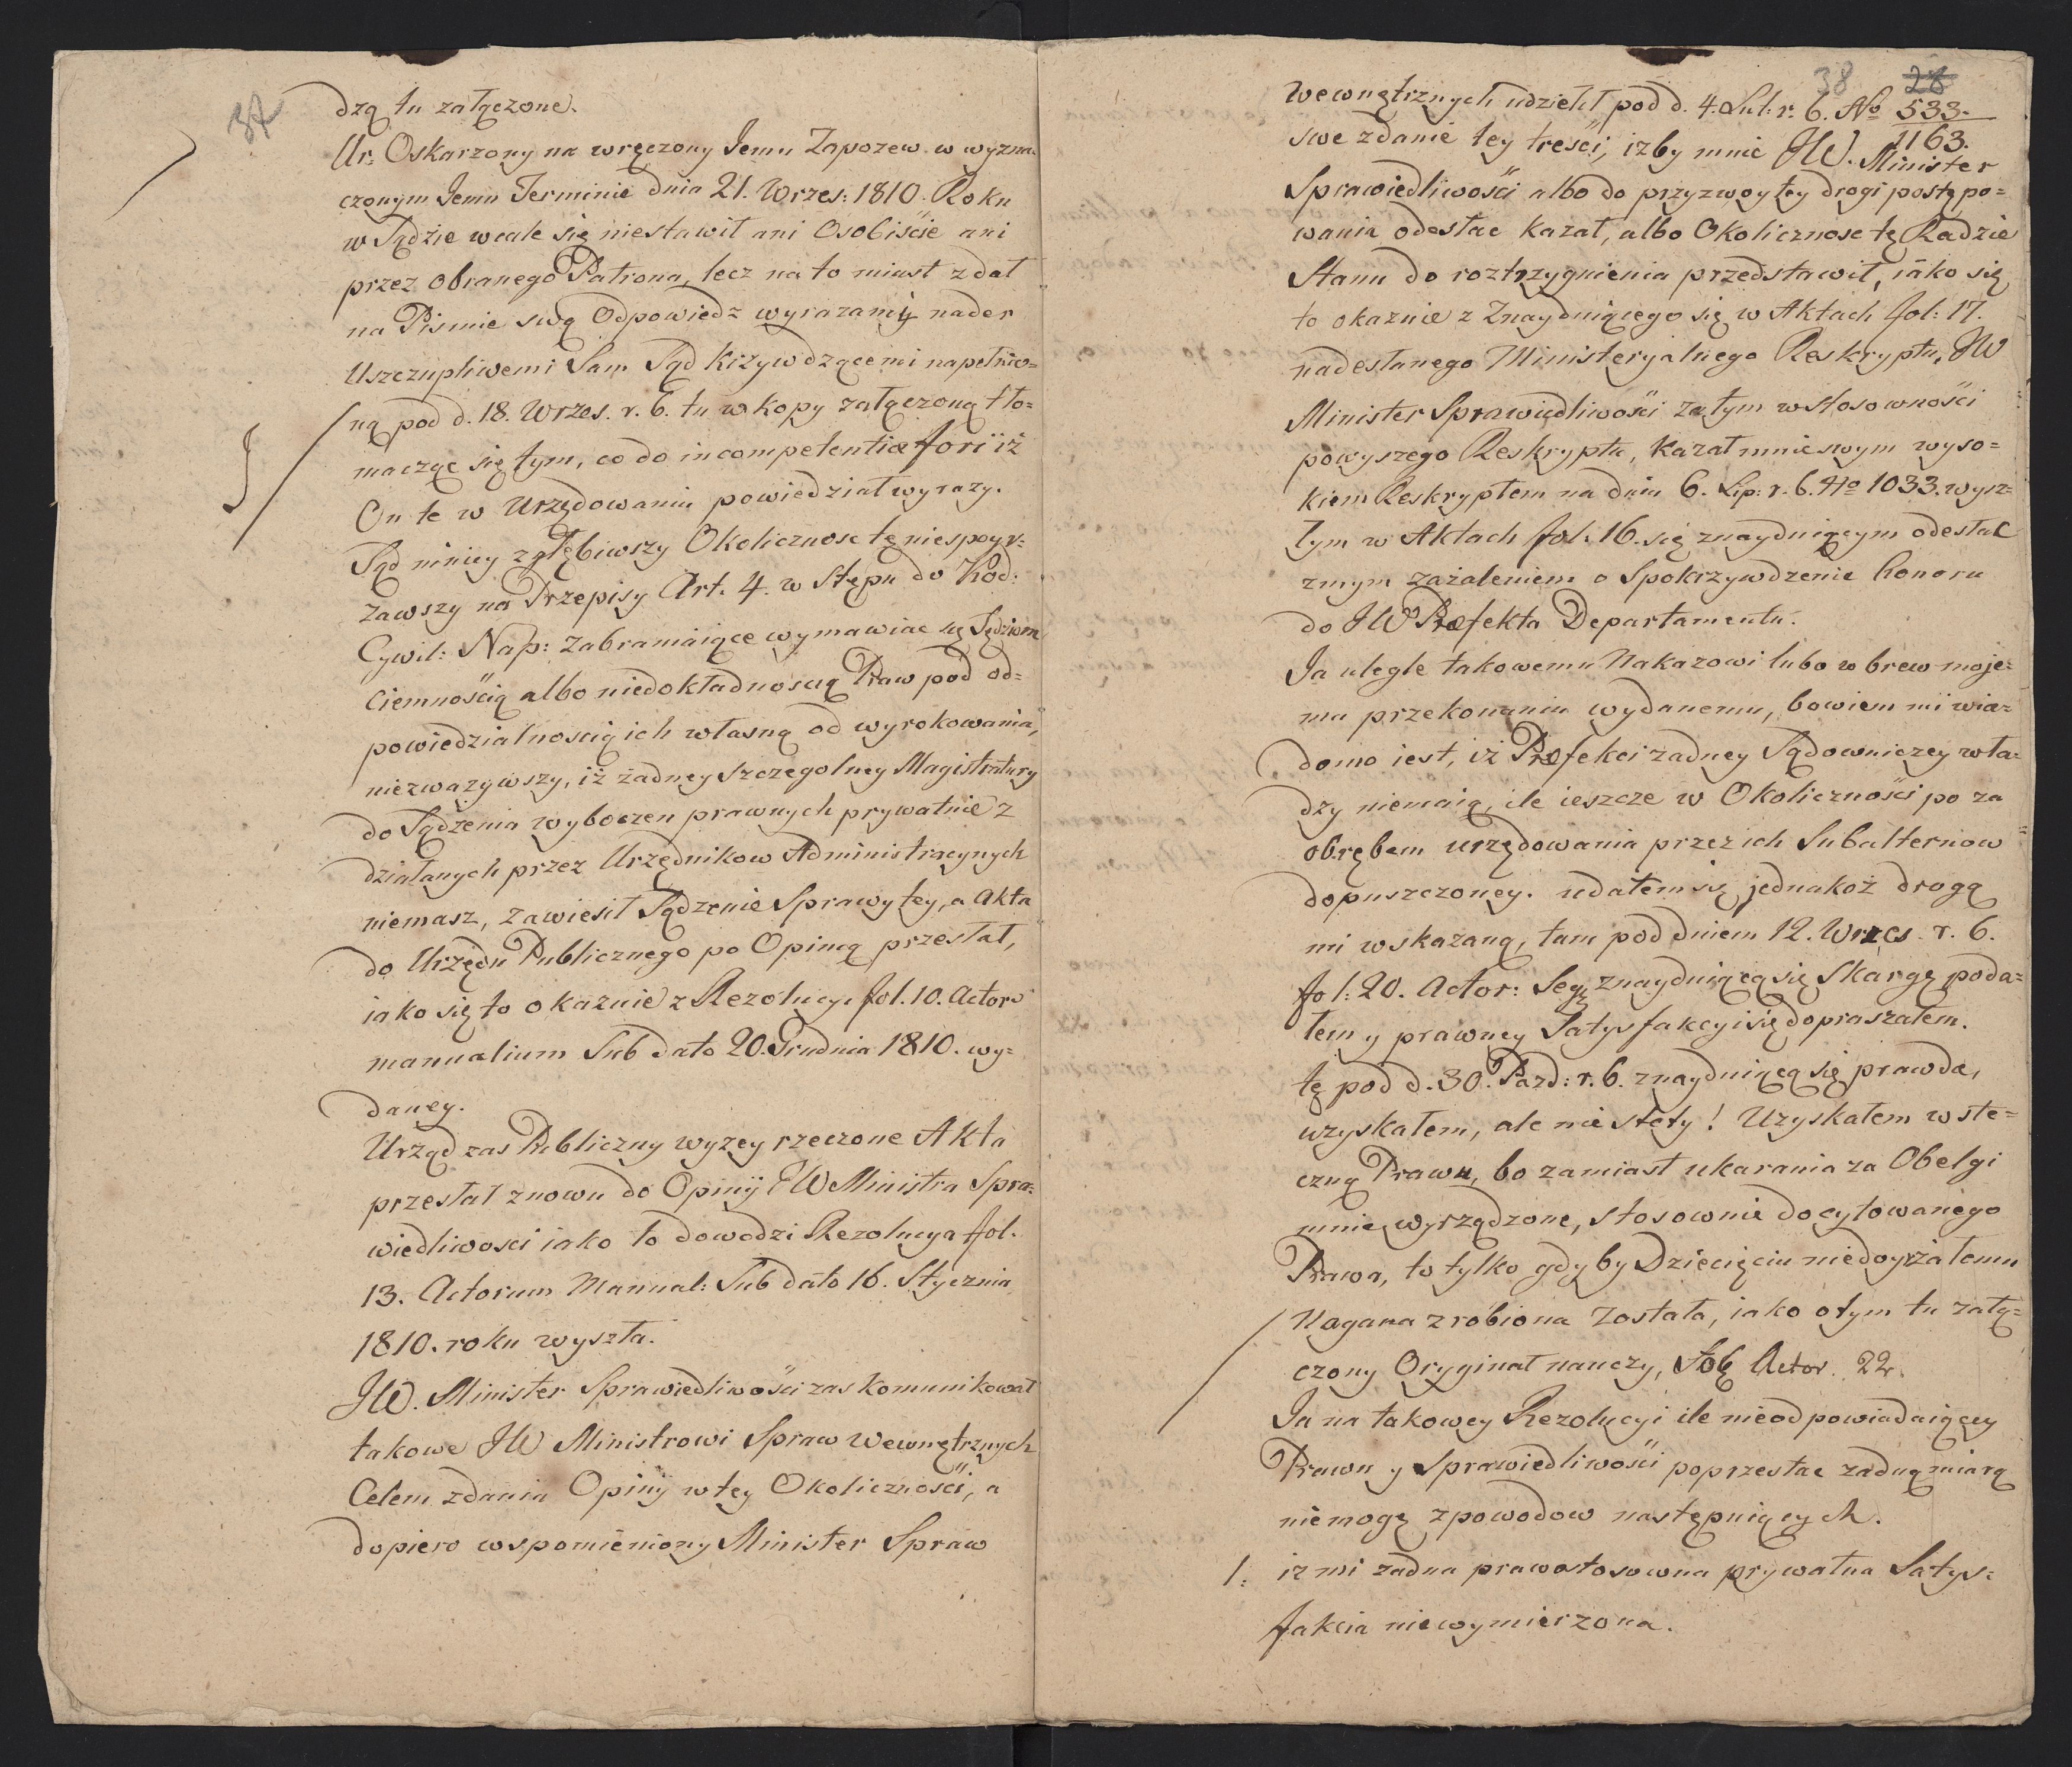 37
dzą tu załączone.
Ur: Oskarzony na wręczony Jemu Zapozew w wyzna-
czonym Jemu Terminie dnia 21. Wrzes: 1810. Roku
w Sądzie wcale się niestawił ani Osobiście ani
przez obranego Patrona, lecz na to miast zdał
na Pismie swą Odpowiedz wyrazamy nader
Uszczupliwemi Sam Sąd krzywdzącemi napełnio=
ną pod d. 18. Wrzes. r. b. tu w kopy załączoną tło=
macząc się tym, co do incompetentiæ fori iż
On te w Urzędowaniu powiedział wyrazy.
Sąd niniey zgłębiwszy Okolicznosc tę niespoyr=
zawszy na Przepisy Art. 4. w Stępu do Kod:
Cywil: Nap: zabraniaiące wymawiac się Sędziom
Ciemnością albo niedokładnoscią Praw pod od=
powiedzialnoscią ich własną od wyrokowania,
niezwazywszy, iż żadney szczegolney Magistratury
do Sądzenia wyboczen prawnych prywatnie z
działanych przez Urzędnikow Administracynych
niemasz, zawiesił Sądzenie Sprawy tey, a Akta
do Urzędu Publicznego po Opinią przesłał,
iako się to okazuie z Rezolucyi fol. 10. Actor
manualium Sub dato 20. Grudnia 1810. wy=
daney.
Urząd zas Publiczny wyzey rzeczone Akta
przesłał znowu do Opinij JW Ministra Spra=
wiedliwosci iako to dowodzi Rezolucya fol.
13. Actorum Manual: Sub dato 16. Stycznia
1810. roku wyszła.
JW. Minister Sprawiedliwości zas komunikował
takowe JW Ministrowi Spraw Wewnętrznych
Celem zdania Opinij w tey Okoliczności, a
dopiero wspomieniony Minister Spraw
38 28
Wewnętrznych udzielił pod d. 4. Lut: r. b. No 533.
1163.
swe zdanie tey treści, izby mnie JW. Minister
Sprawiedliwości albo do przyzwoytey drogi postępo=
wania odesłac kazał, albo Okolicznosc tę Radzie
Stanu do roztrzygnienia przedstawił, iako się
to okazuie z Znayduiącego się w Aktach fol: 17.
nadesłanego Ministeryalnego Reskryptu, JW
Minister Sprawiedliwości zatym w stosowności
powyszego Reskryptu, kazał mnie swym wyso=
kiem Reskryptem na dniu 6. Lip: r. b. No 1033. wysz=
łym w Aktach fol: 16. się znayduiącym odesłac
zmym zażaleniem o Spokrzywdzenie honoru
do JW Præfekta Departamentu.
Ja uległe takowemu Nakazowi lubo w brew moje=
mu przekonaniu wydanemu, bowiem mi wia=
domo iest, iż Præfekci zadney Sądowniczey wła=
dzy niemaią, ile ieszcze w Okoliczności po za
obrębem urzędowania przez ich Subalternow
dopuszczoney. udałem się jednakoż drogą
mi wskazaną, tam pod dniem 12. Wrzes. r. b.
fol: 20. Actor: Seq znayduiącą się Skargę poda=
łem y prawney Satysfakcyi się dopraszałem.
tę pod d. 30. Pazd: r. b. znayduiącą się prawda,
uzyskałem, ale nie stety! Uzyskałem w ste=
czną Prawu, bo zamiast ukarania za Obelgi
mnie wyrządzone, stosownie do cytowanego
Prawa, to tylko gdyby Dziecięciu niedoyrzałemu
Nagana zrobiona Została, iako o tym tu załą=
czony Oryginał nauczy, Actor. 22.
Ja na takowey Rezolucyi ile nieodpowiadaiącey
Prawu y Sprawiedliwości poprzestac zadną miarą
niemogę zpowodow następuiących.
1: iz mi zadna prawostosowna prywatna Satys=
fakcia niewymierzona.